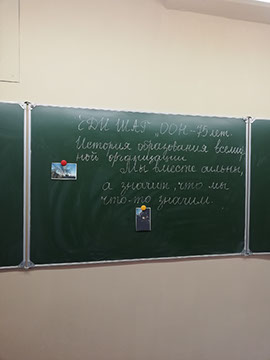 "ЕДИ ШАГ" "ООН-75 лет.
История образования всемир-
ной организации
Мы вместе сильны,
а значит, что мы
что-то значим.